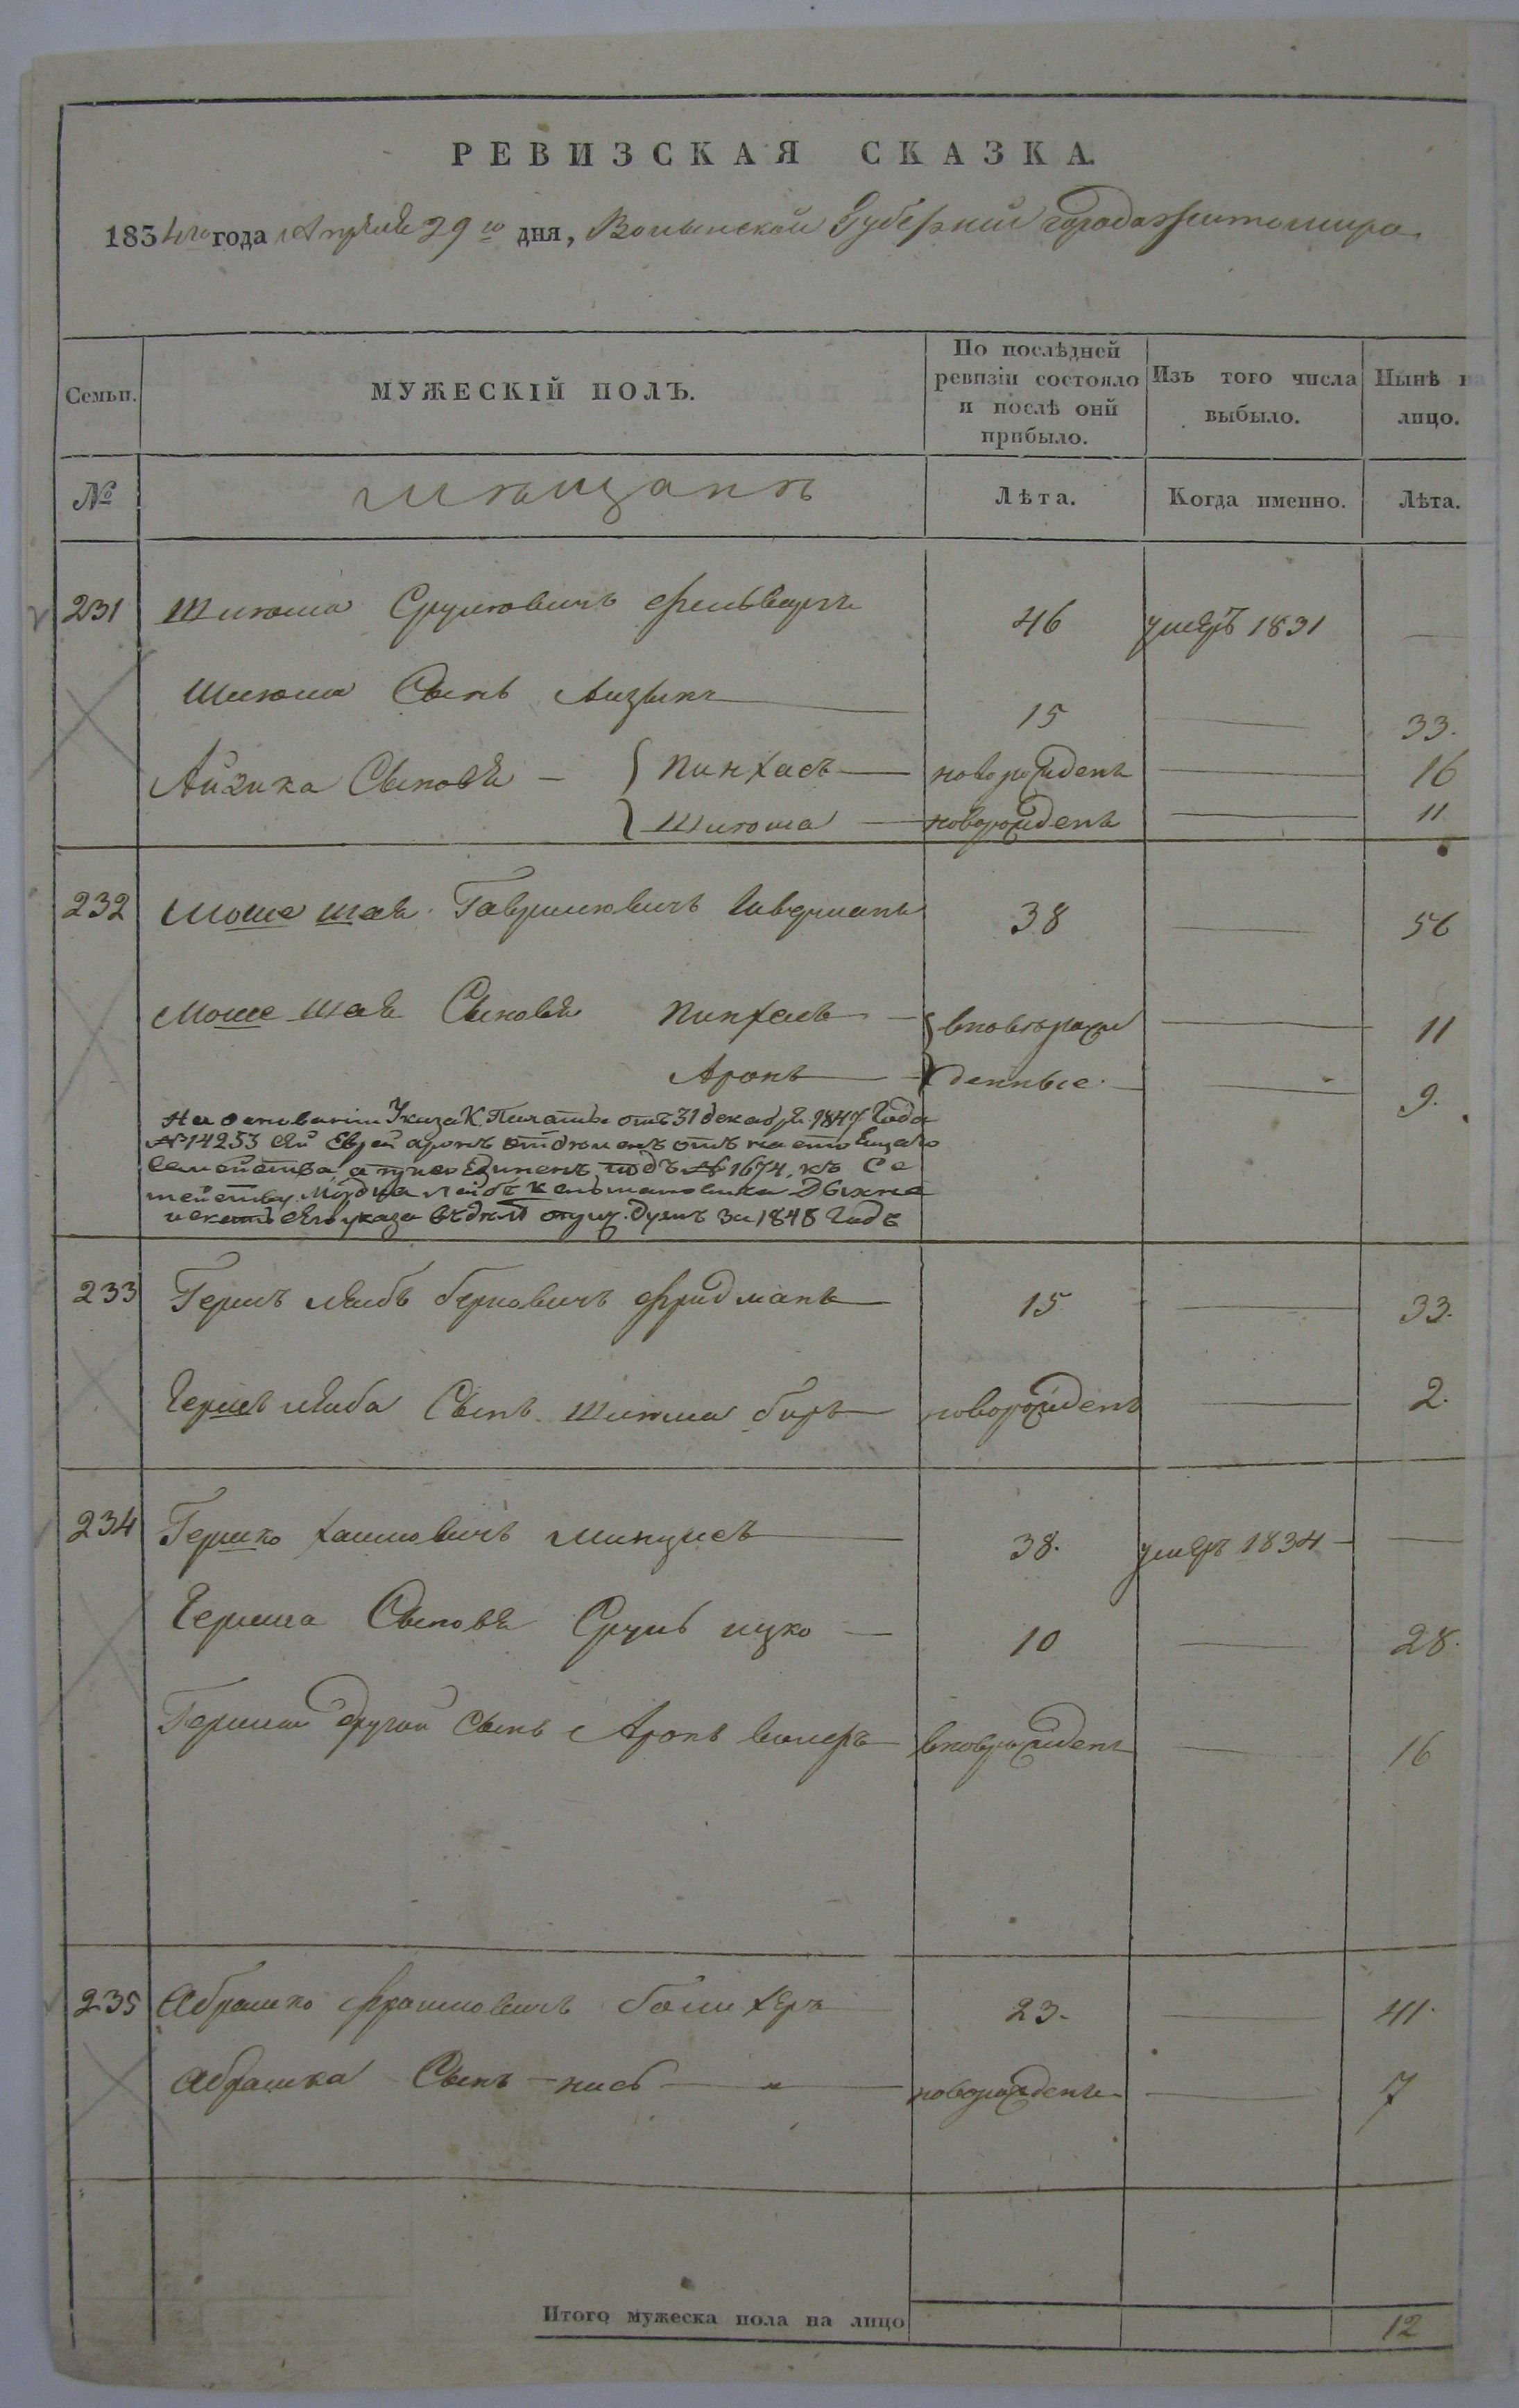 РЕВИЗСКАЯ СКАЗКА.
1834го года Апреля 29го дня, Волынской Губернии города Житомира
Семьи.
МУЖЕСКІЙ ПОЛЪ.
По послѣдней ревизіи состояло и послѣ онй прибыло.
Изъ того числа выбыло.
Нынѣ на лицо.
№
мещанъ
Лѣта.
Когда именно.
Лѣта.
231 Шлиома Срулиовичъ 46 умеръ 1831 —
Шлиома Сынъ Айзыкъ 15 — 33.
Айзика Сыновя — Пинхасъ — новорожденъ — 16
Шлиома — новорожденъ — 11
232 Моше шая Гаврилиовичъ 38 — 56
Моше шая Сыновя Пинхасъ — вновьрож — 11
Аронъ — денные — 9.
На основании Указа К. Палаты отъ 31 декабря 1847 Года
№ 14253 сей Еврей аронъ отделенъ отъ настоящаго
Семейства а присоединенъ подъ № 1674, къ Се
мейству Мордка лейбы
указа въ делѣ за 1848 Годъ
233 Гершъ лейбъ берковичъ фридманъ 15 — 33.
Гершъ лейба Сынъ Шлиома беръ новорожденъ — 2.
234 Гершко хаимовичъ минцисъ 38. умеръ 1834 — —
Герша Сыновя Сруль ицко — 10 — 28.
Герша другой сынъ Аронъ вновьрожденъ — 16
235 Абрашко 23. — 41.
Абрашка Сынъ — — новорожденъ — 7
Итого мужеска пола на лицо 12